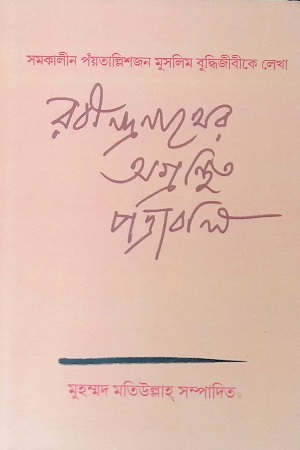 সমকালীন পঁয়তাল্লিশজন মুসলিম বুদ্ধিজীবীকে লেখা
রবীন্দ্রনাথের
অগ্রন্থিত
পত্রাবলি
মুহম্মদ মতিউল্লাহ্ সম্পাদিত